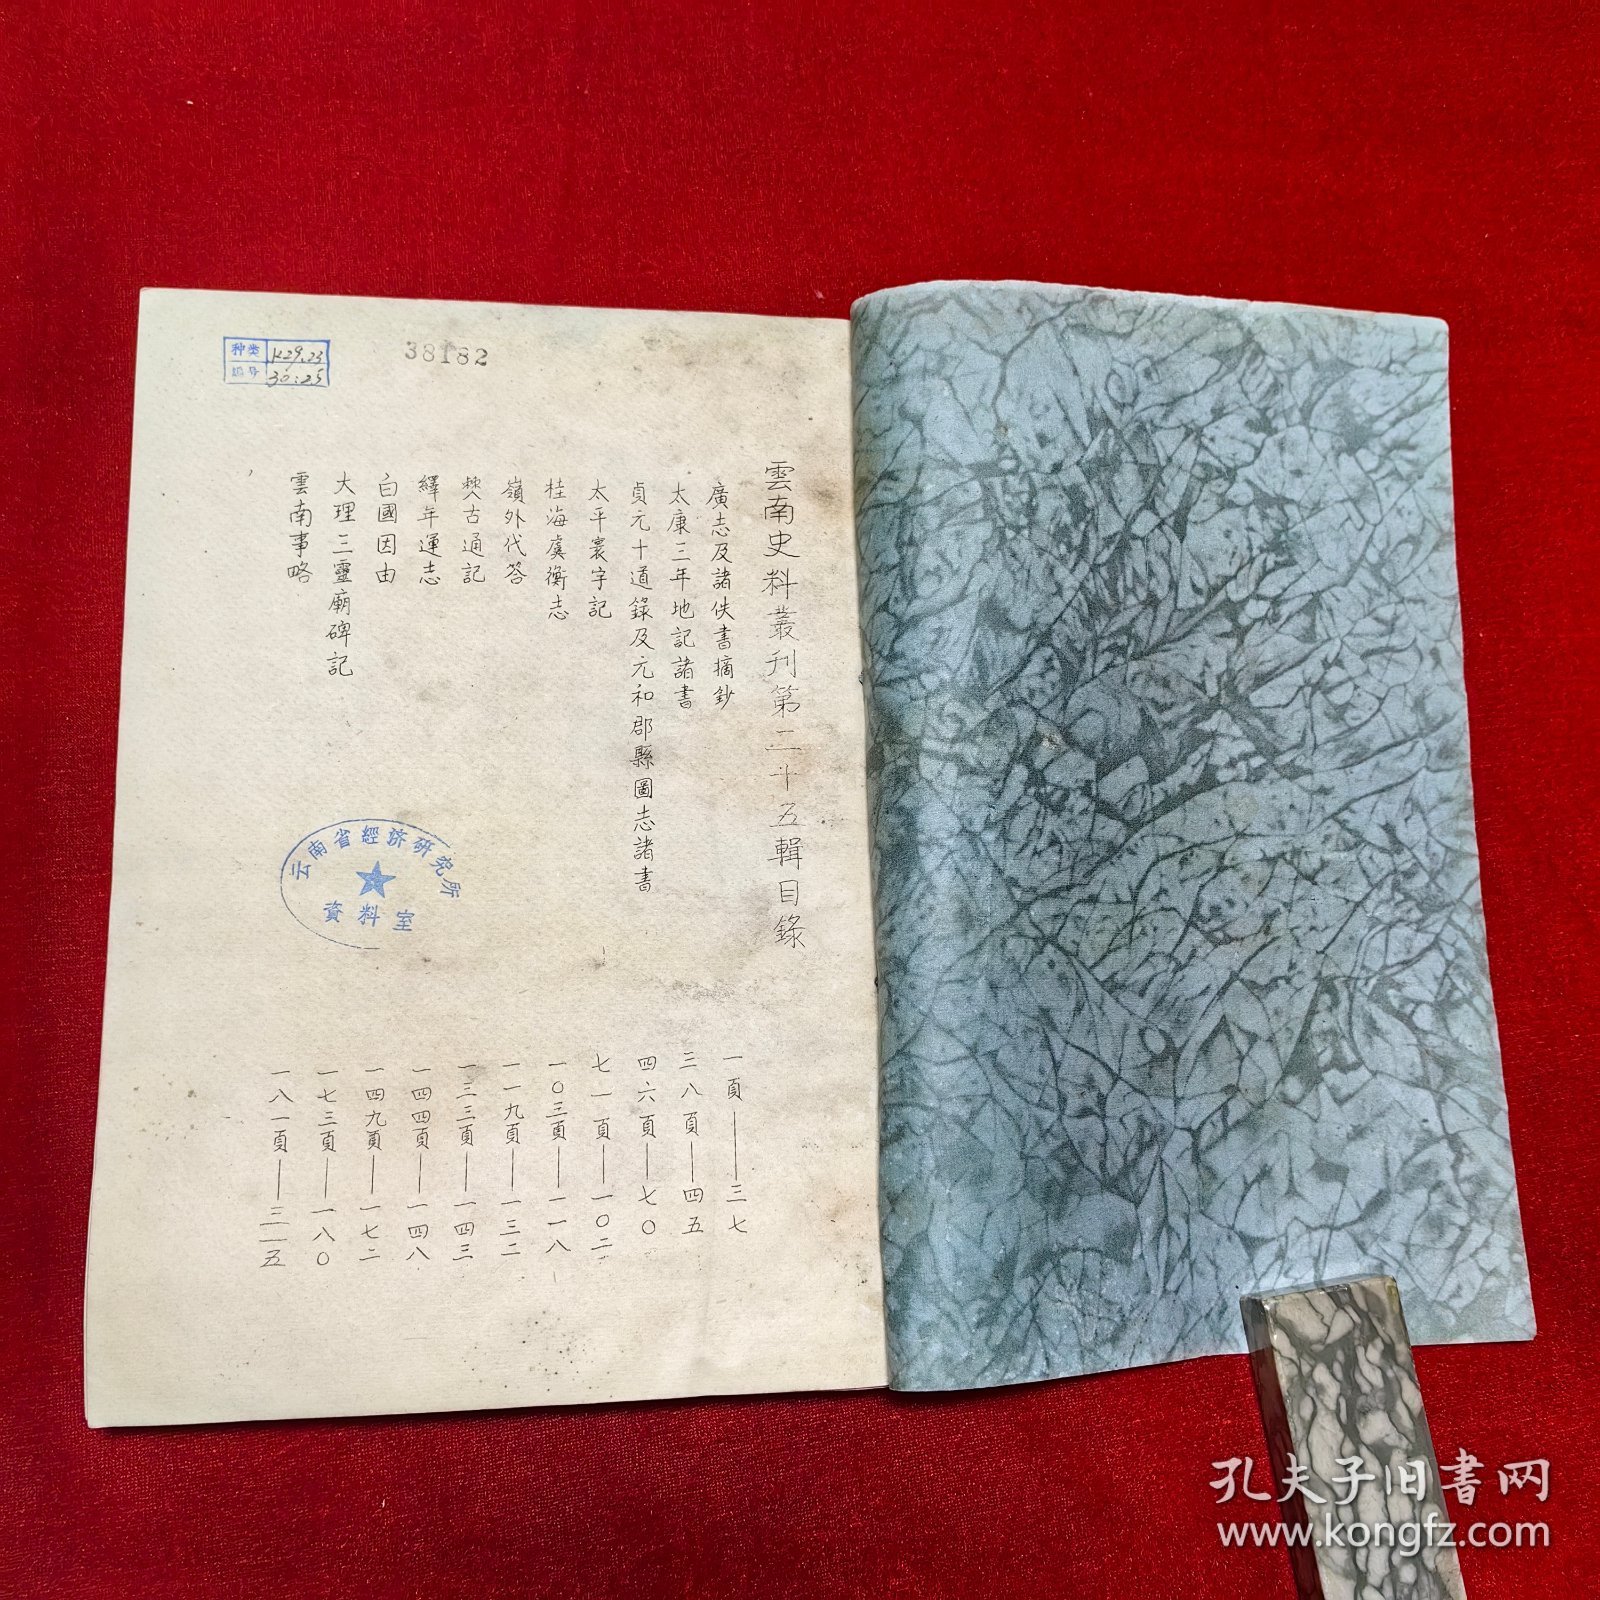 种类 K29.23
编号 30:25
38182
雲南史料叢刊第二十五輯目錄
廣志及諸佚書摘鈔 一頁——三七
太康三年地記諸書 三八頁——四五
貞元十道錄及元和郡縣圖志諸書 四六頁——七〇
太平寰宇記 七一頁——一〇二
桂海虞衡志 一〇三頁——一一八
嶺外代答 一一九頁——一三二
僰古通記 一三三頁——一四三
繹年運志 一四四頁——一四八
白國因由 一四九頁——一七二
大理三靈廟碑記 一七三頁——一八〇
雲南事略 一八一頁——三一五
云南省經济研究所
資料室
孔夫子旧書网
www.kongfz.com